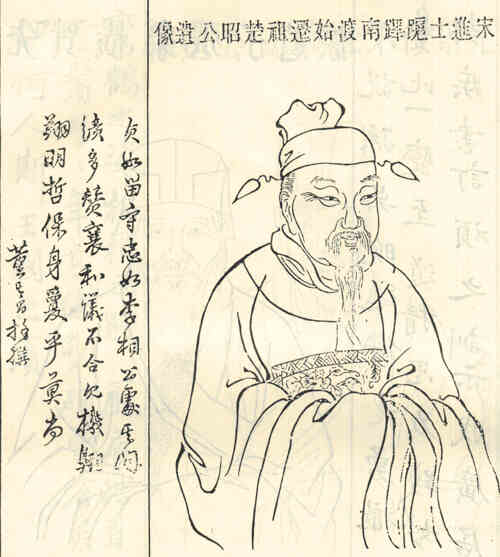 宋進士扈蹕南渡始遷祖楚昭公遺像
貞如留守忠如李相公處其間
多贊襄和議不合見機翱
翔明哲保身乎莫尚
董其昌拜撰